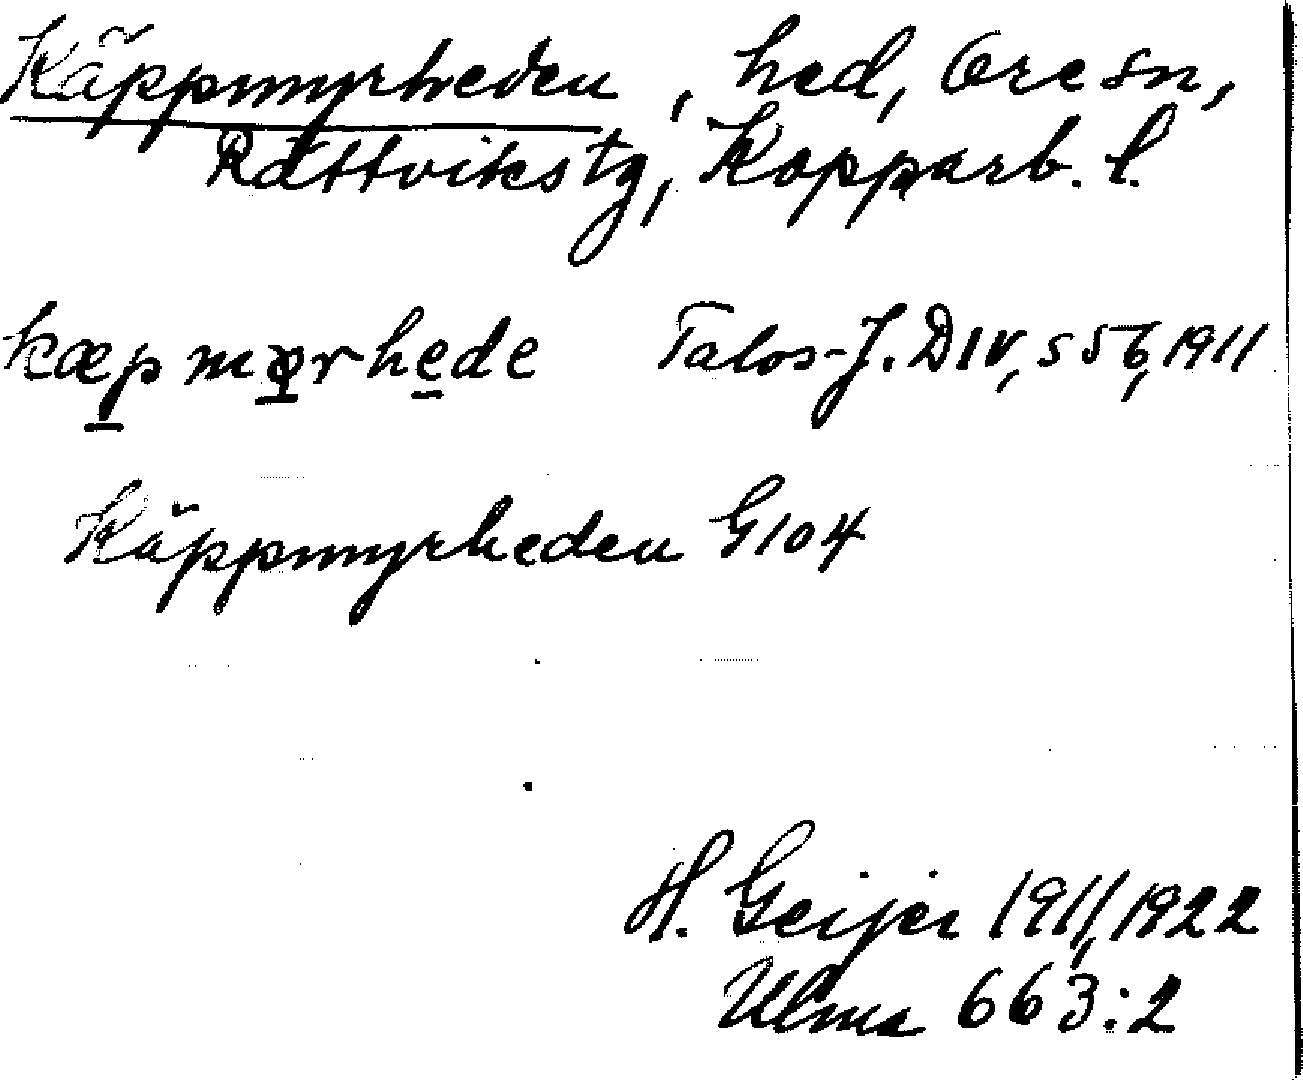 Käppmyrheden, hed, Ore sn,
Rättviks tg, Kopparb. l.
kæpmyrhede Talos-J. D IV, s 56, 1911
Käppmyrheden G 104
H. Geijer 1911, 1922
Ulma 663:2